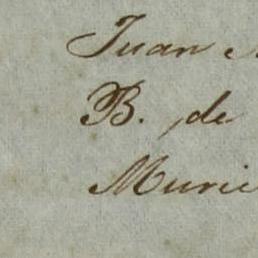 Juan
B. de
Munic